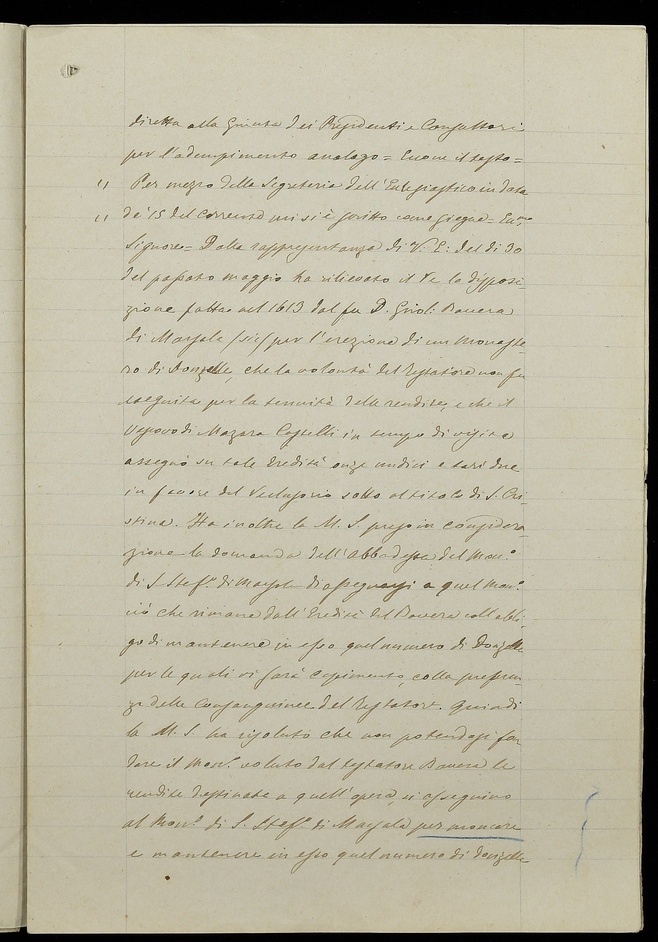 diretta alla Giunta dei Presidenti e Consultori
per l'adempimento analogo = Eccone il testo =
" Per mezzo della Segreteria dell'Ecclesiastico in data
" de' 15 del corrente mi si è scritto come siegue = Ecc.mo
Signore = Dalla rappresentanza di V. E: del dì 30
del passato maggio ha rilievato il Re la disposi=
zione fatta nel 1613 dal fu D. Giuli Ravera
di Marsala (sic) per l'erezione di un monaste
ro di donzelle, che la volontà del Testatore non fu
eseguita per la tenuità delle rendite, e che il
Vescovo di Mazara Castelli in tempo di visita
assegnò su tale Eredità onze undici e tarì due
in favore del Reclusorio sotto al titolo di S. Cri-
stina. Ha inoltre la M. S. preso in considera=
zione la domanda dell'Abbadessa del Mon.o
di S. Stef.o di Marsala di assegnarsi a quel Mon.o
ciò che rimane dall'Eredità del Ravera coll'obbli-
go di mantenere in esso quel numero di Donzelle
per le quali vi sarà capimento, colla preferen
za delle Consanguinee del Testatore. Quindi
la M. S. ha risoluto che non potendosi fon
dare il Mon.o voluto dal testatore Ravera le
rendite destinate a quell'opera, si asseguino
al Mon.o di S. Stef.o di Marsala per monacare
e mantenere in esso quel numero di donzelle